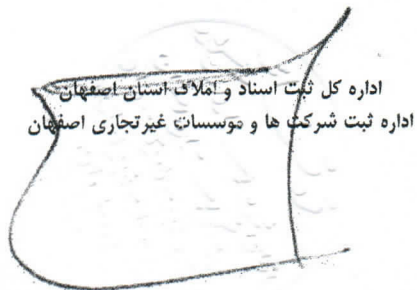 اداره کل ثبت اسناد و املاک استان اصفهان
اداره ثبت شرکت ها و موسسات غیرتجاری اصفهان